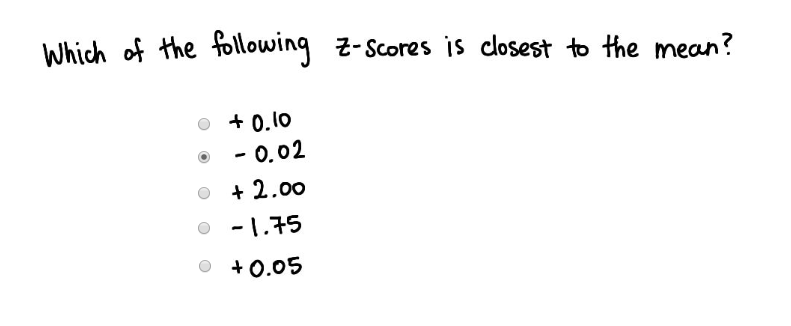 Which of the following Z-Scores is closest to the mean?
+ 0.10
- 0.02
+ 2.00
- 1.75
+ 0.05